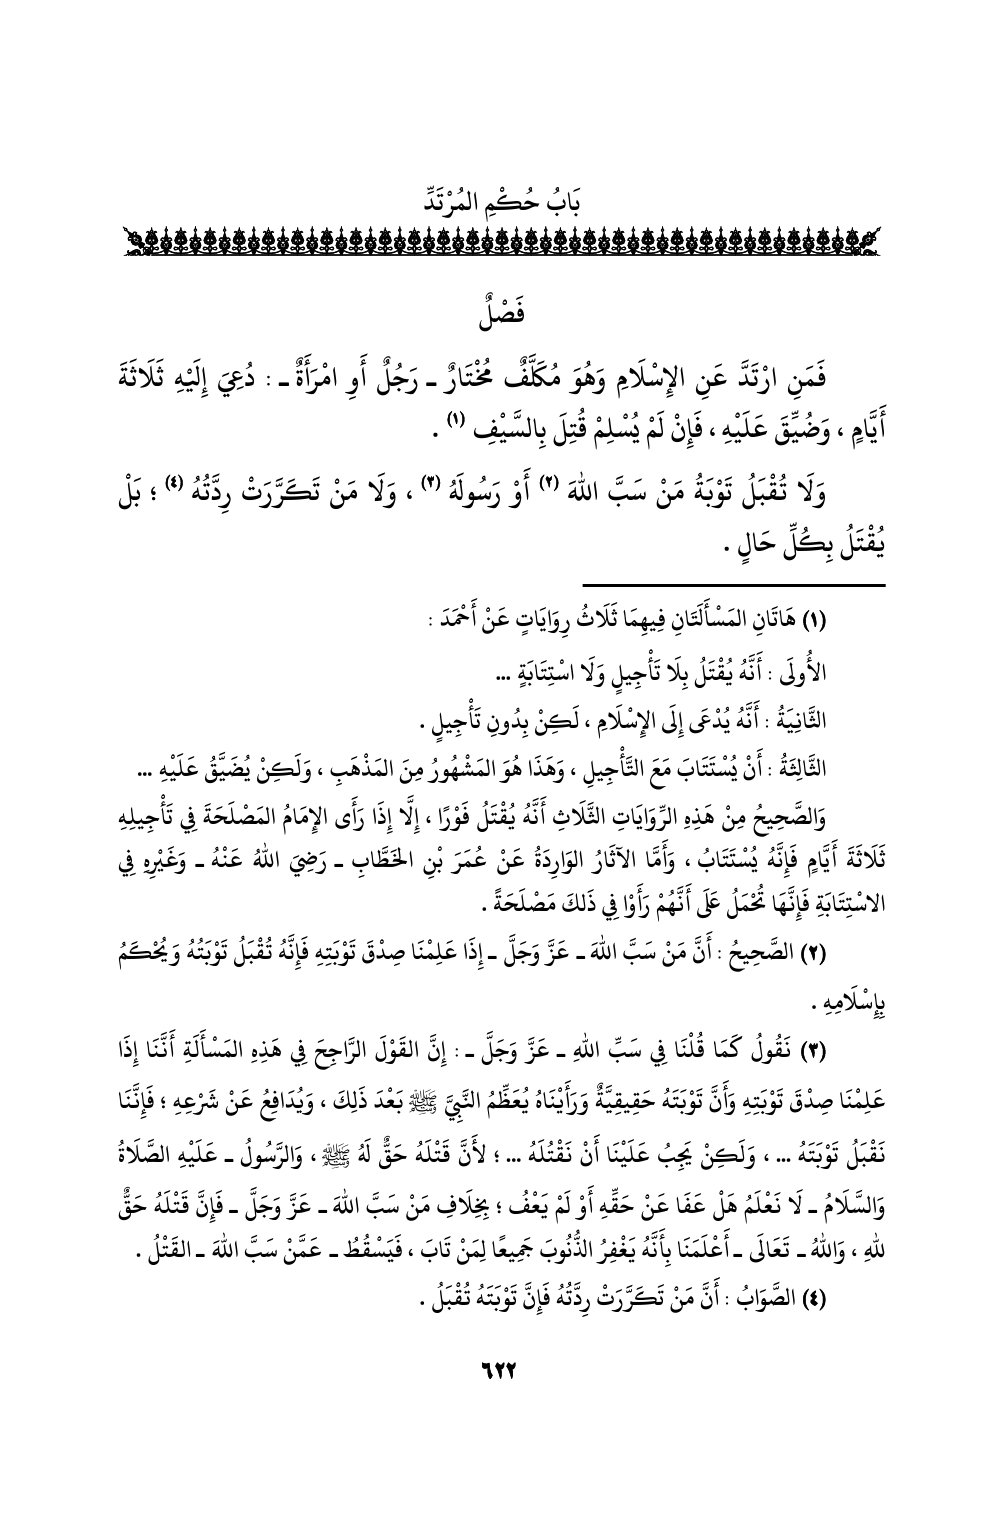 بَابُ حُكْمِ المُرْتَدِّ
فَصْلٌ
فَمَنِ ارْتَدَّ عَنِ الإِسْلَامِ وَهُوَ مُكَلَّفٌ مُخْتَارٌ ـ رَجُلٌ أَوِ امْرَأَةٌ ـ : دُعِيَ إِلَيْهِ ثَلَاثَةَ
أَيَّامٍ ، وَضُيِّقَ عَلَيْهِ ، فَإِنْ لَمْ يُسْلِمْ قُتِلَ بِالسَّيْفِ (١) .
وَلَا تُقْبَلُ تَوْبَةُ مَنْ سَبَّ اللهَ (٢) أَوْ رَسُولَهُ (٣) ، وَلَا مَنْ تَكَرَّرَتْ رِدَّتُهُ (٤) ؛ بَلْ
يُقْتَلُ بِكُلِّ حَالٍ .
(١) هَاتَانِ المَسْأَلَتَانِ فِيهِمَا ثَلَاثُ رِوَايَاتٍ عَنْ أَحْمَدَ :
الأُولَى : أَنَّهُ يُقْتَلُ بِلَا تَأْجِيلٍ وَلَا اسْتِتَابَةٍ ...
الثَّانِيَةُ : أَنَّهُ يُدْعَى إِلَى الإِسْلَامِ ، لَكِنْ بِدُونِ تَأْجِيلٍ .
الثَّالِثَةُ : أَنْ يُسْتَتَابَ مَعَ التَّأْجِيلِ ، وَهَذَا هُوَ المَشْهُورُ مِنَ المَذْهَبِ ، وَلَكِنْ يُضَيَّقُ عَلَيْهِ ...
وَالصَّحِيحُ مِنْ هَذِهِ الرِّوَايَاتِ الثَّلَاثِ أَنَّهُ يُقْتَلُ فَوْرًا ، إِلَّا إِذَا رَأَى الإِمَامُ المَصْلَحَةَ فِي تَأْجِيلِهِ
ثَلَاثَةَ أَيَّامٍ فَإِنَّهُ يُسْتَتَابُ ، وَأَمَّا الآثَارُ الوَارِدَةُ عَنْ عُمَرَ بْنِ الخَطَّابِ ـ رَضِيَ اللهُ عَنْهُ ـ وَغَيْرِهِ فِي
الاسْتِتَابَةِ فَإِنَّهَا تُحْمَلُ عَلَى أَنَّهُمْ رَأَوْا فِي ذَلكَ مَصْلَحَةً .
(٢) الصَّحِيحُ : أَنَّ مَنْ سَبَّ اللهَ ـ عَزَّ وَجَلَّ ـ إِذَا عَلِمْنَا صِدْقَ تَوْبَتِهِ فَإِنَّهُ تُقْبَلُ تَوْبَتُهُ وَيُحْكَمُ
بِإِسْلَامِهِ .
(٣) نَقُولُ كَمَا قُلْنَا فِي سَبِّ اللهِ ـ عَزَّ وَجَلَّ ـ : إِنَّ القَوْلَ الرَّاجِحَ فِي هَذِهِ المَسْأَلَةِ أَنَّنَا إِذَا
عَلِمْنَا صِدْقَ تَوْبَتِهِ وَأَنَّ تَوْبَتَهُ حَقِيقِيَّةٌ وَرَأَيْنَاهُ يُعَظِّمُ النَّبِيَّ ﷺ بَعْدَ ذَلِكَ ، وَيُدَافِعُ عَنْ شَرْعِهِ ؛ فَإِنَّنَا
نَقْبَلُ تَوْبَتَهُ ... ، وَلَكِنْ يَجِبُ عَلَيْنَا أَنْ نَقْتُلَهُ ... ؛ لأَنَّ قَتْلَهُ حَقٌّ لَهُ ﷺ ، وَالرَّسُولُ ـ عَلَيْهِ الصَّلَاةُ
وَالسَّلَامُ ـ لَا نَعْلَمُ هَلْ عَفَا عَنْ حَقِّهِ أَوْ لَمْ يَعْفُ ؛ بِخِلَافِ مَنْ سَبَّ اللهَ ـ عَزَّ وَجَلَّ ـ فَإِنَّ قَتْلَهُ حَقٌّ
للهِ ، وَاللهُ ـ تَعَالَى ـ أَعْلَمَنَا بِأَنَّهُ يَغْفِرُ الذُّنُوبَ جَمِيعًا لِمَنْ تَابَ ، فَيَسْقُطُ ـ عَمَّنْ سَبَّ اللهَ ـ القَتْلُ .
(٤) الصَّوَابُ : أَنَّ مَنْ تَكَرَّرَتْ رِدَّتُهُ فَإِنَّ تَوْبَتَهُ تُقْبَلُ .
٦٢٢